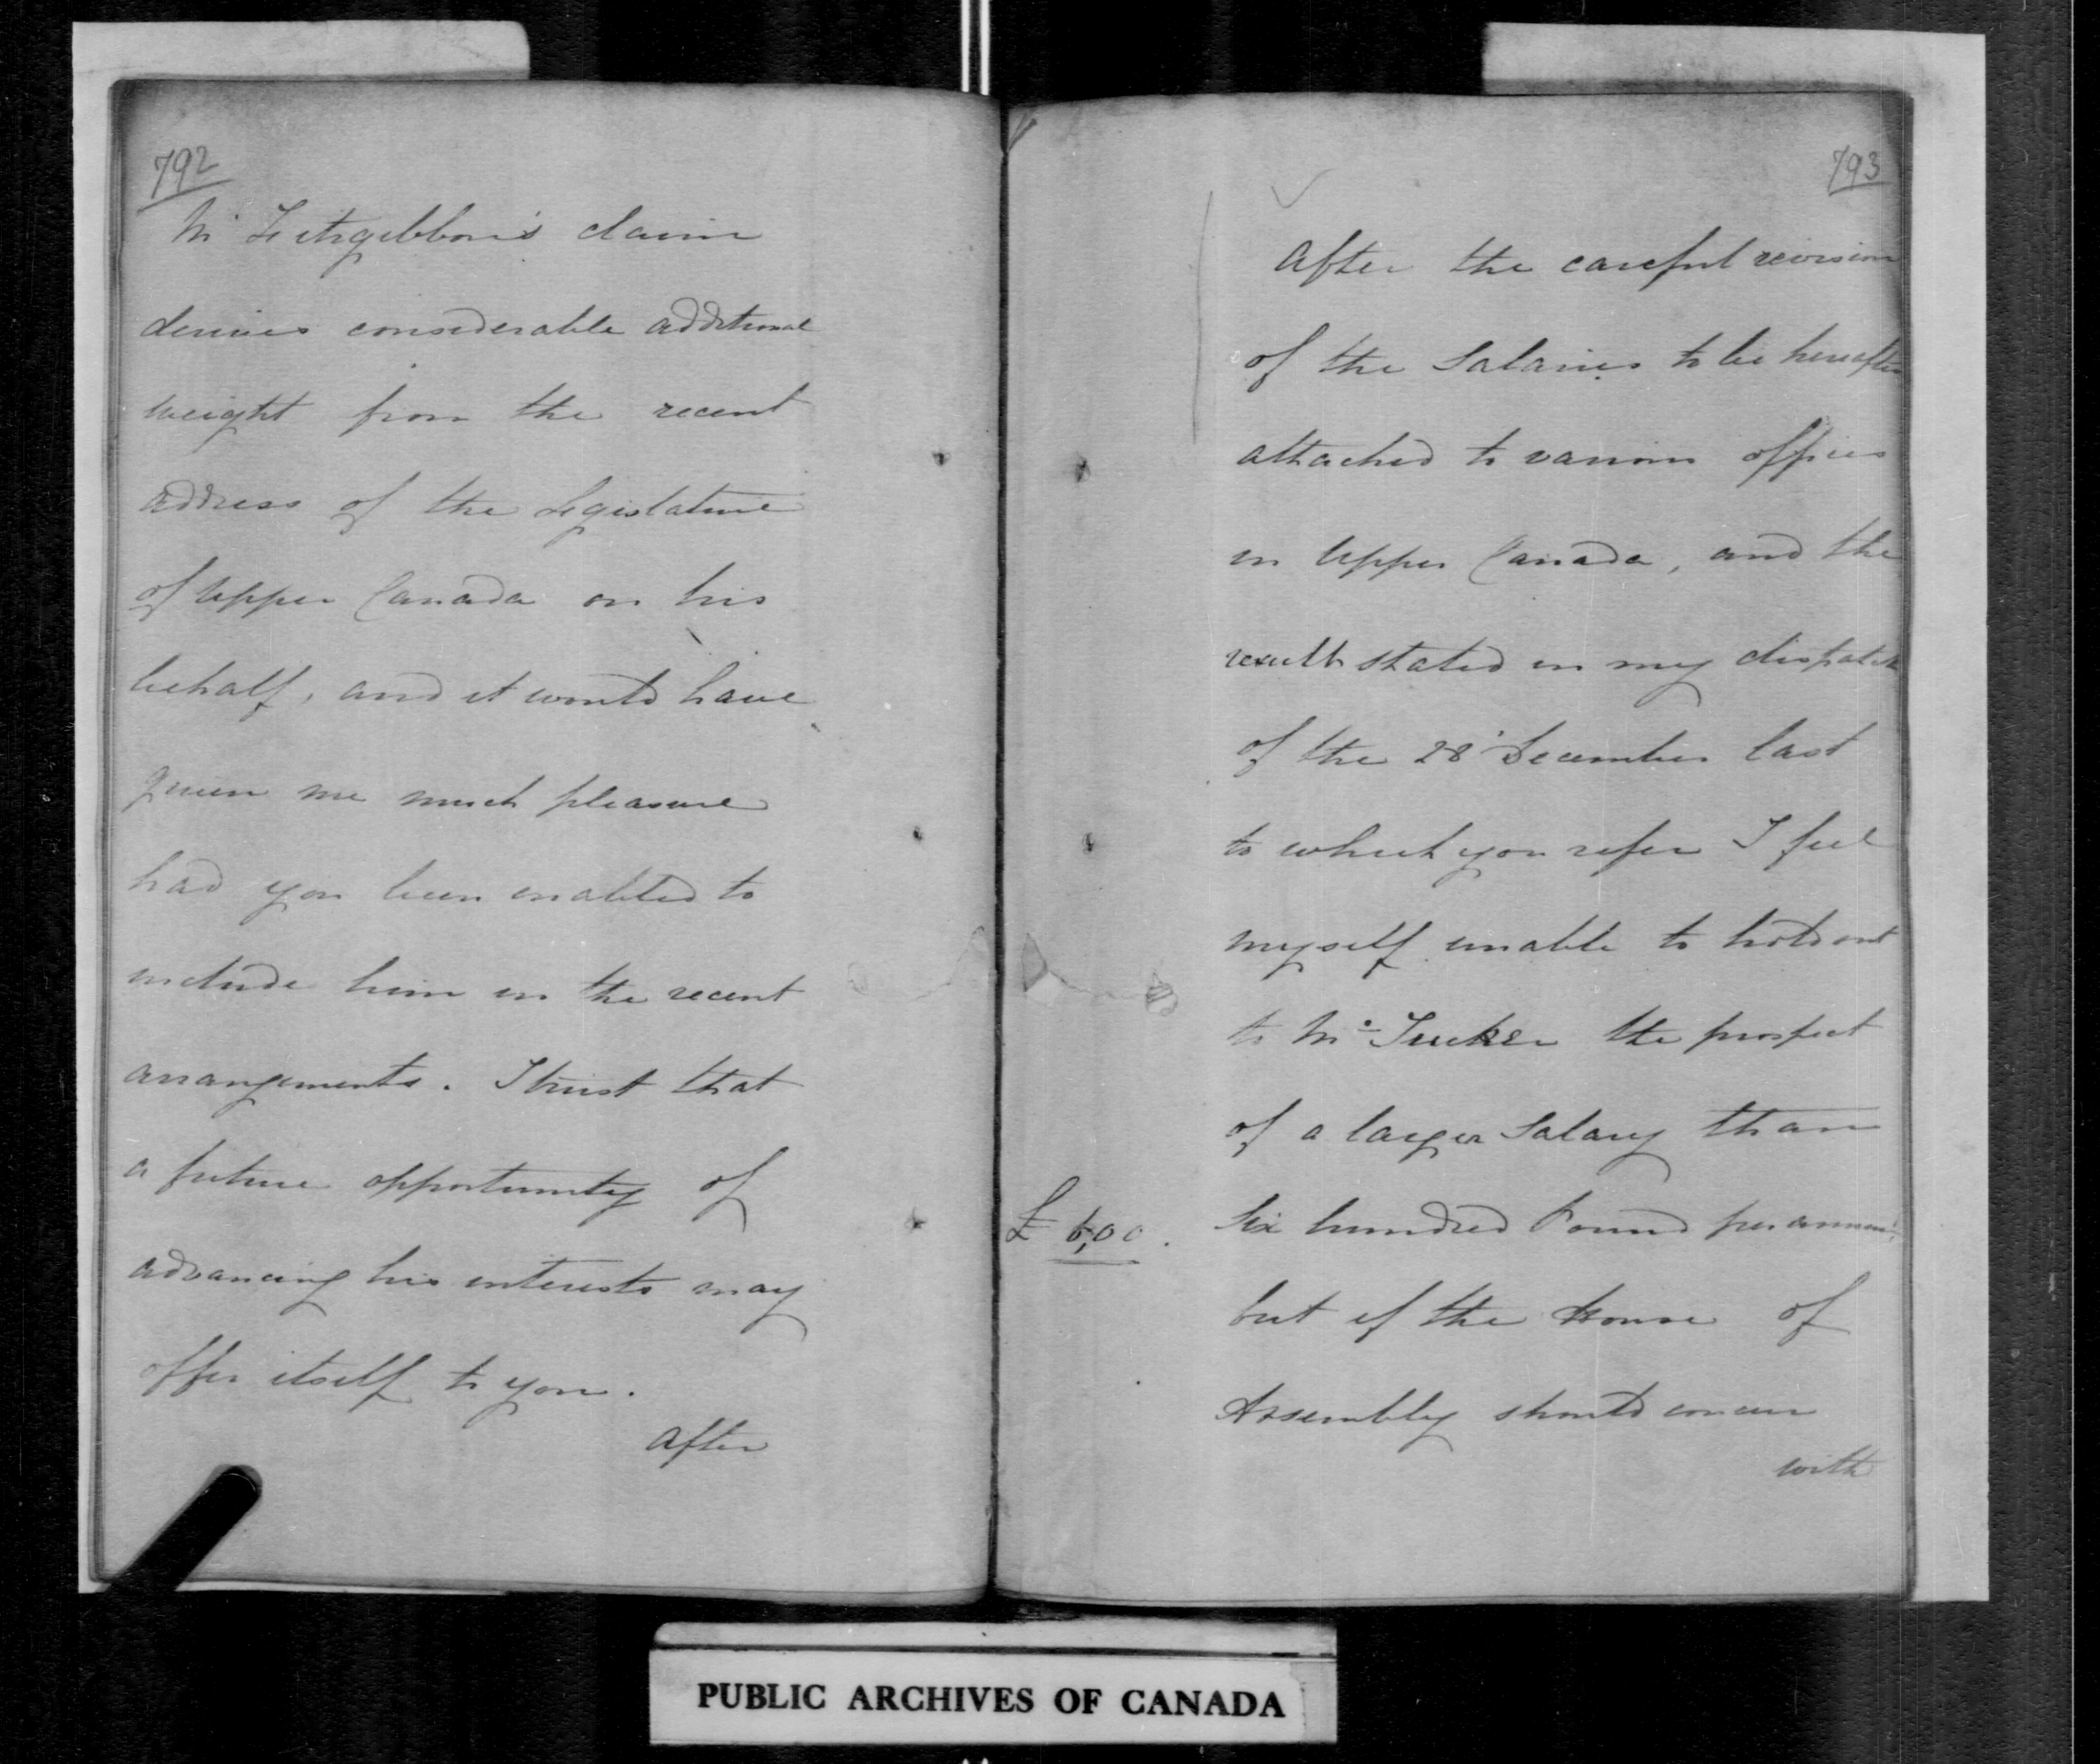 792
Mr Fitzgibbon's claim
derives considerable additional
weight from the recent
address of the Legislature
of Upper Canada on his
behalf, and it would have
given me much pleasure
had you been enabled to
include him in the recent
arrangements. I trust that
a future opportunity of
advancing his interests may
offer itself to you.
After
793
After the careful revision
of the Salaries to be hereafter
attached to various offices
in Upper Canada, and the
result stated in my dispatch
of the 28 December last
to which you refer I feel
myself unable to hold out
to Mr Tucker the prospect
of a larger Salary than
£ 600. Six hundred Pound per annum,
but if the House of
Assembly should concur
with
PUBLIC ARCHIVES OF CANADA